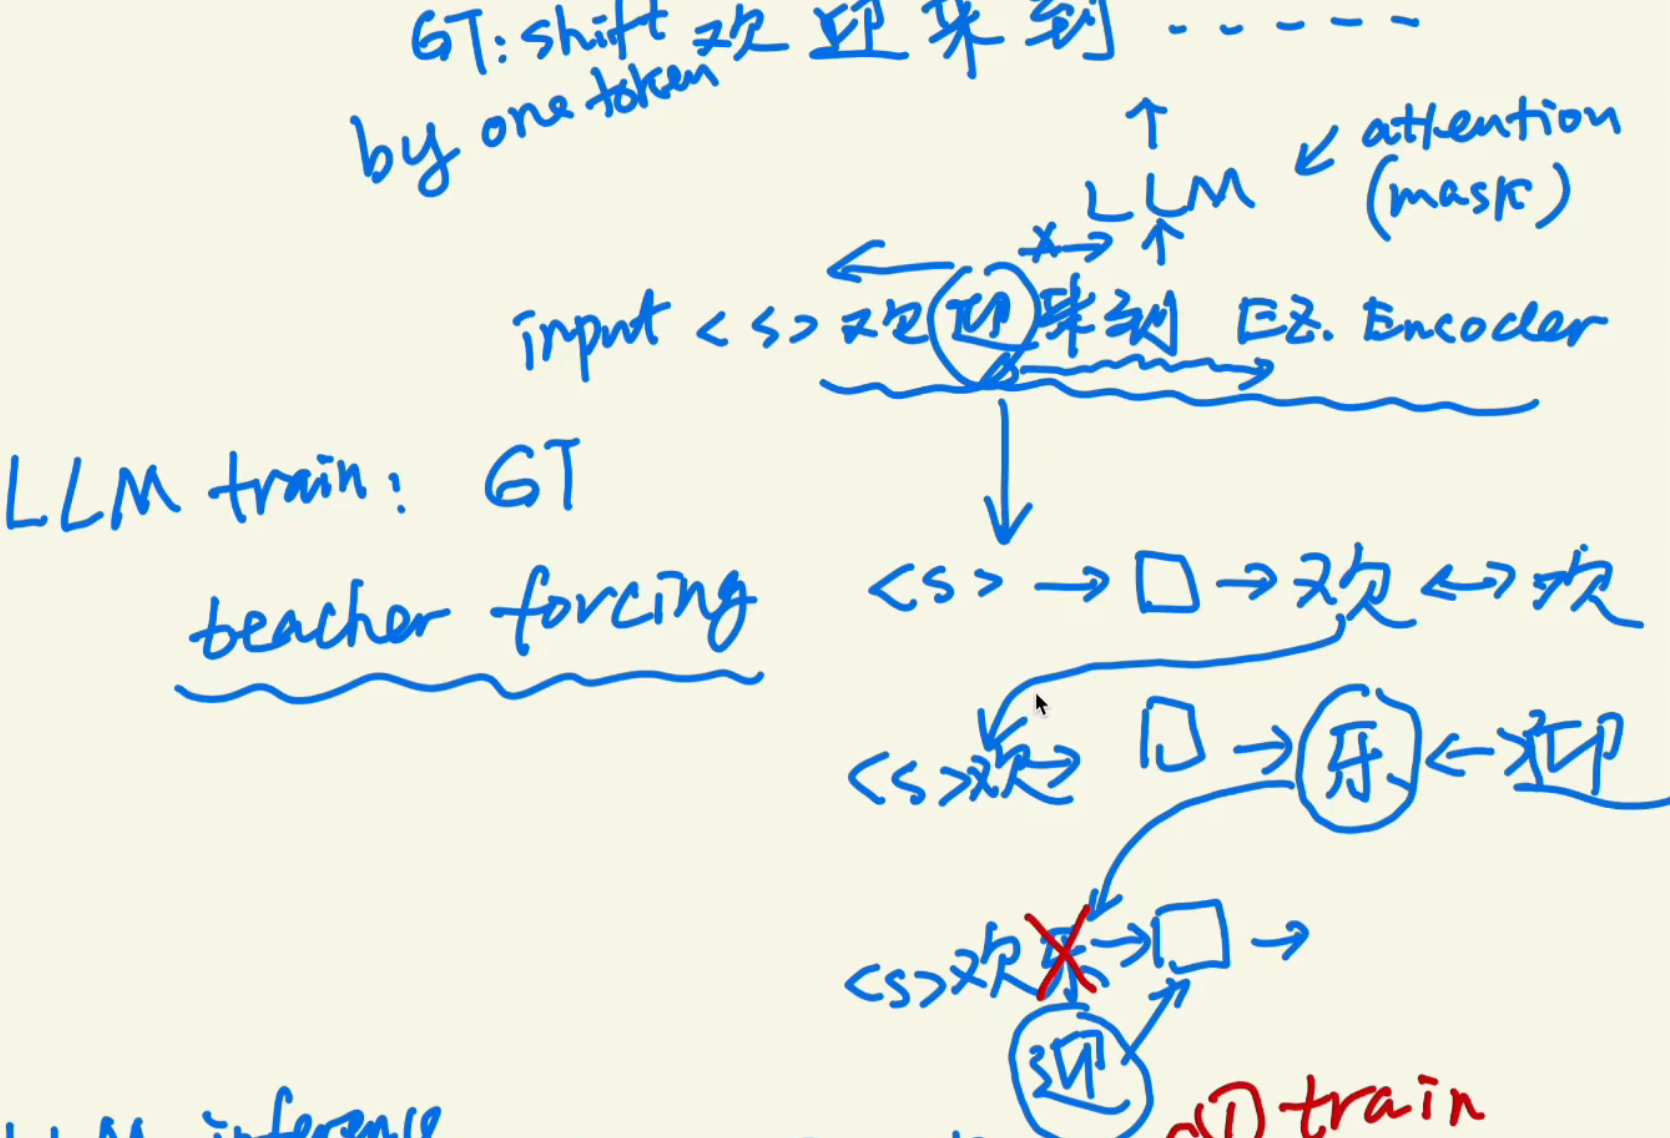 GT: shift 欢 迎 来 到 ------
by one token
attention
(mask)
LLM
input <s> 欢迎来到 EZ. Encoder
LLM train: GT
teacher forcing
<s> → □ → 欢 ↔ 欢
<s>欢→ □ → 乐 ← 迎
<s>欢乐 → □ →
迎
① train
LLM inference